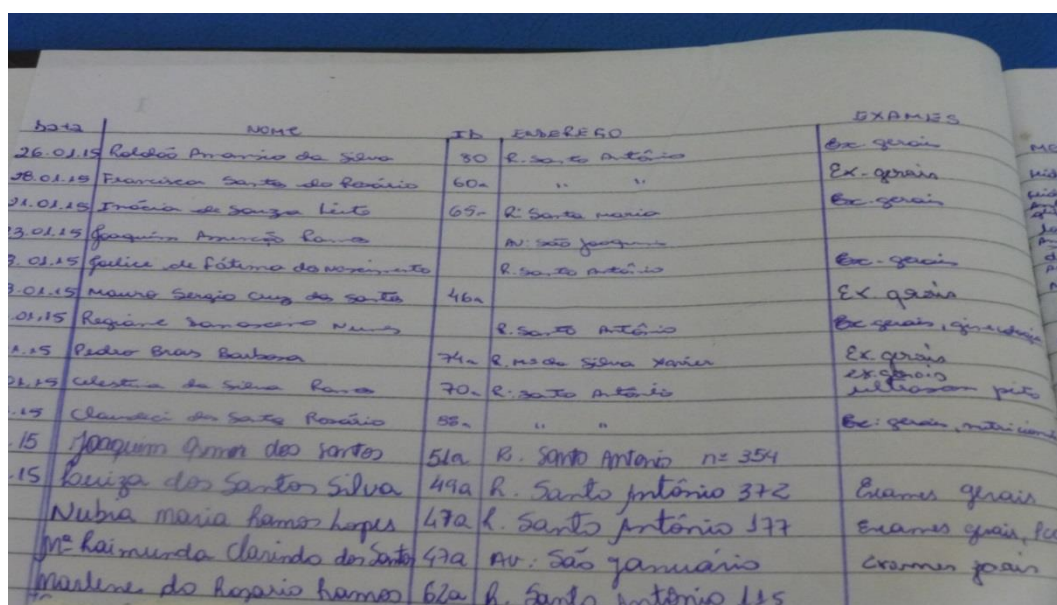 Data NOME ID ENDEREÇO EXAMES
26.01.15 da Silva 80 R. Santo Antônio Ex. gerais
28.01.15 Francisca Santos do Rosário 60a " " Ex. gerais
21.01.15 Inácia de Souza 65a R: Santa maria Ex. gerais
3.01.15 Joaquim Ramos AV: São Joaquim
3.01.15 de Fátima do nascimento R. Santo Antônio Ex. gerais
3.01.15 Mauro Sergio Cruz dos Santos 46a Ex. gerais
.01.15 Regiane Nunes R. Santo Antônio Ex gerais, ginecologia
1.15 Pedro Bras Barbosa 74a R. da Silva Xavier Ex. gerais
01.15 Celestina da Silva Ramos 70a R: Santo Antônio ex gerais
.15 dos Santos Rosário " " Ex: gerais,
.15 Joaquim dos Santos 51a R. Santo Antonio nº 354
.15 Luiza dos Santos Silva 49a R. Santo Antônio 372 Exames gerais
Nubia maria Ramos Lopes 47a R. Santo Antônio 177 Exames gerais,
Mª Raimunda Clarindo dos Santos 47a AV: São januário exames
Marlene do Rosario Ramos 62a R. Santo Antônio 115